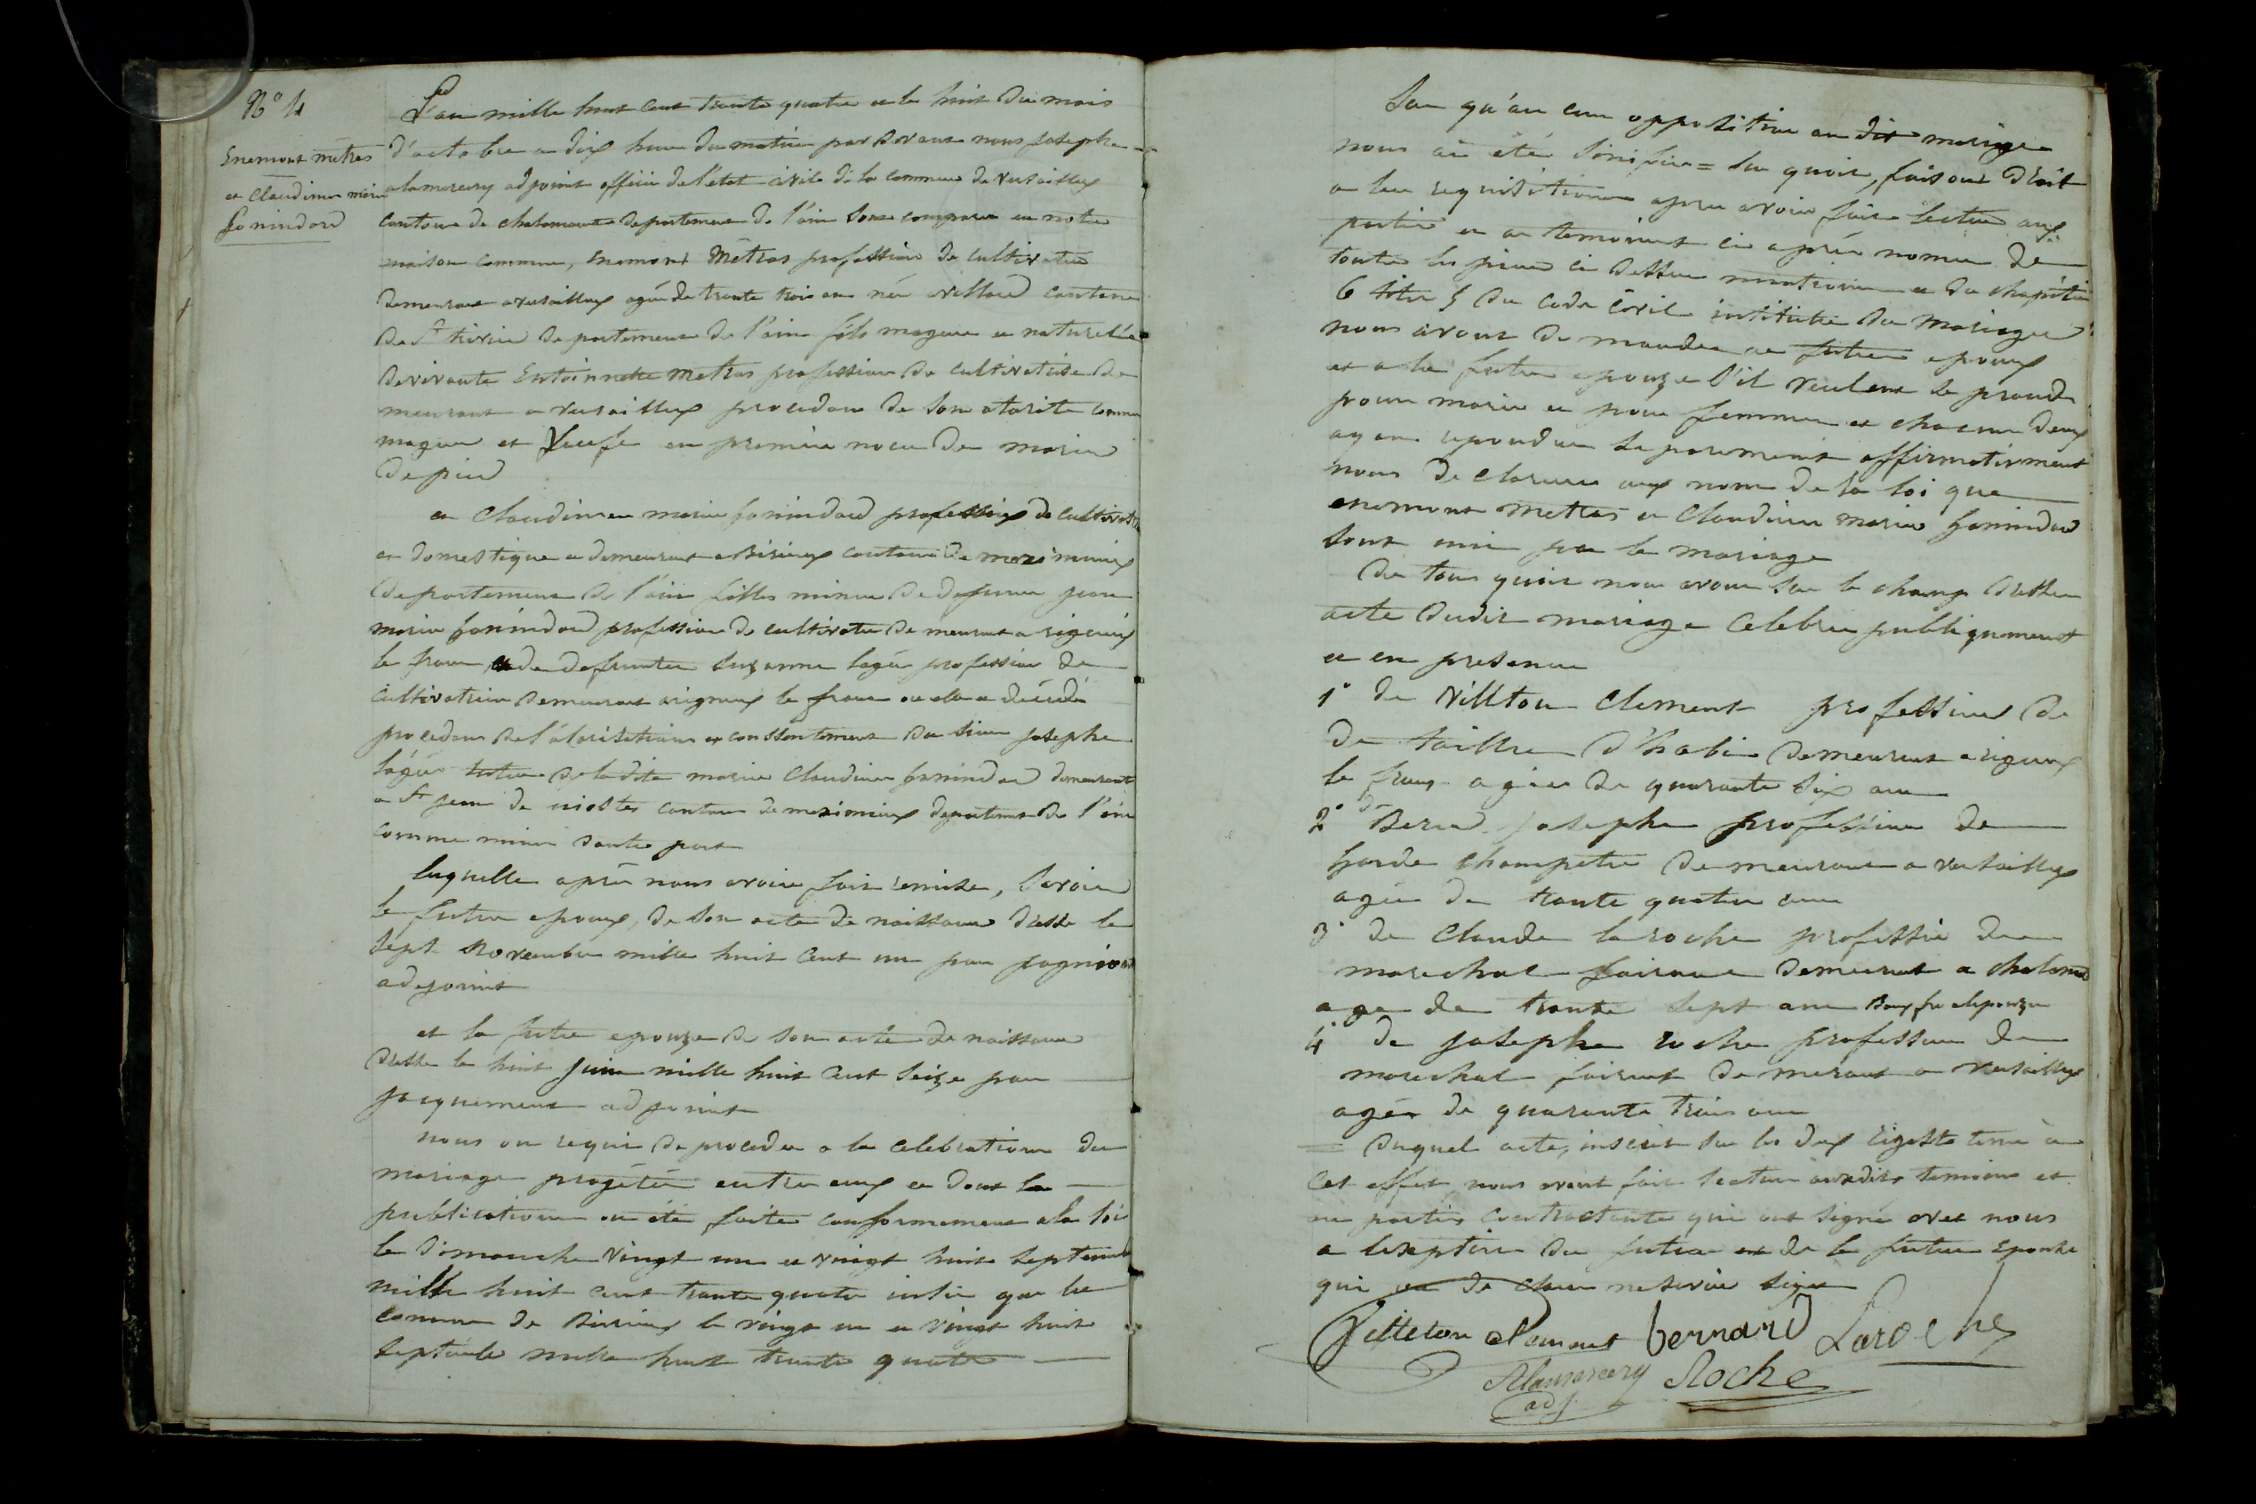 N° 4
Enemont métras
et Claudine marie
Gonindard
L'an mille huit cent trente quatre et le huit du mois
d'octobre a dix heure du matin par devant nous Josephe
alamercery adjoint officie de l'état civile de la commune de versailleux
cantone de chalamont departement de l'ain sont comparu en notre
maison commune, enemont Métras profession de cultivateur
demeurant a versailleux agé de trente trois an né a villard cantone
de St trivie departement de l'ain fils mageur et naturel é
de vivante Entoinnette Metras profession de cultivatrise de
meurant a versailleux procedant de son otorité comme
mageur et Veufe en premiere noce de marie
depied
et Claudinne marie gonindard profession de cultivatrice
et domestique a demeurant a Birieux cantone de meximieux
departement de l'ain fille mineu de defunt jean
marie gonindard profession de cultivateur demeurant a rigneux
le franc, et de defunte suzanne lagér profession de
cultivatrice demeurant a rigneux le franc ou elle a décédé
procedant de l'otorisation et conssentement du sieur josephe
lagér tuteur de ladite marie Claudine gonindard demeurant
a St jean de niostes cantone de meximieux departement de l'ain
comme mineu dautre part
lequelle aprés nous avoir fait remise, savoir
le futur epoux, de son acte de naissance dressé le
sept Novembre mille huit cent un par pagnion
adejoint
et la future epouze de son acte de naissance
dressé le huit Juin mille huit cent seize par
jacquemont adjoint
nous on requi de proceder a la celebration du
mariage progété entre eux et dont la
publication on été faite conformement a la loi
le dimanche vingt un et vingt huit septembre
mille huit cent trante quatre insin que la
comune de Birieux le vingt un et vingt huit
septembe mille huit trante quatre
san qu'au cune opposition au dit mariage
nous ai été sinifiée = sur quoi, faisant droit
a leur requisition apres avoir fait lecture aux
partie et au temoints ci aprés nomée de
toute les pieces ci dessus mentionné et du chapitre
6 titre 5 du code civil intitulé du mariage
nous avont demander au futur epoux
et a la future epouze s'il veulent se prendre
pour marie et pour femme et chacune deux
ayant repondue separement affirmativement
nous declarons aux nom de la loi que
enemont mettras et Claudine marie gonindard
sont unie par le mariage
De tous quoi nous avons sur le champ dressé
acte dudit mariage celebré publiquement
et en presence
1° de Villton Clement profession de
de tailleu d'habi demeurant a rigneux
le franc agée de quarante six ans
2° de Berard Josephe profession de
Garde champetre demeurant a versailleux
agée de trante quatre ans
3° de Claude laroche profession de
marechal fairant demeurant a chalamont
age de trante sept ans Baux fre alepouze
4° de Josephe roche profession de
marechal fairant demeurant a versailleux
agée de quarante trois ans
Duquel acte, inscrit sur les deux rigestre tenu à
cet effet nous avont fait lecture auxdits temoins et
au parties contractante qui ont signé avec nous
a lexeption du futur et de la future Epouse
qui on de claré ne savoir signé
Velleton Clement bernard Laroche
Alamercery Roche
adj